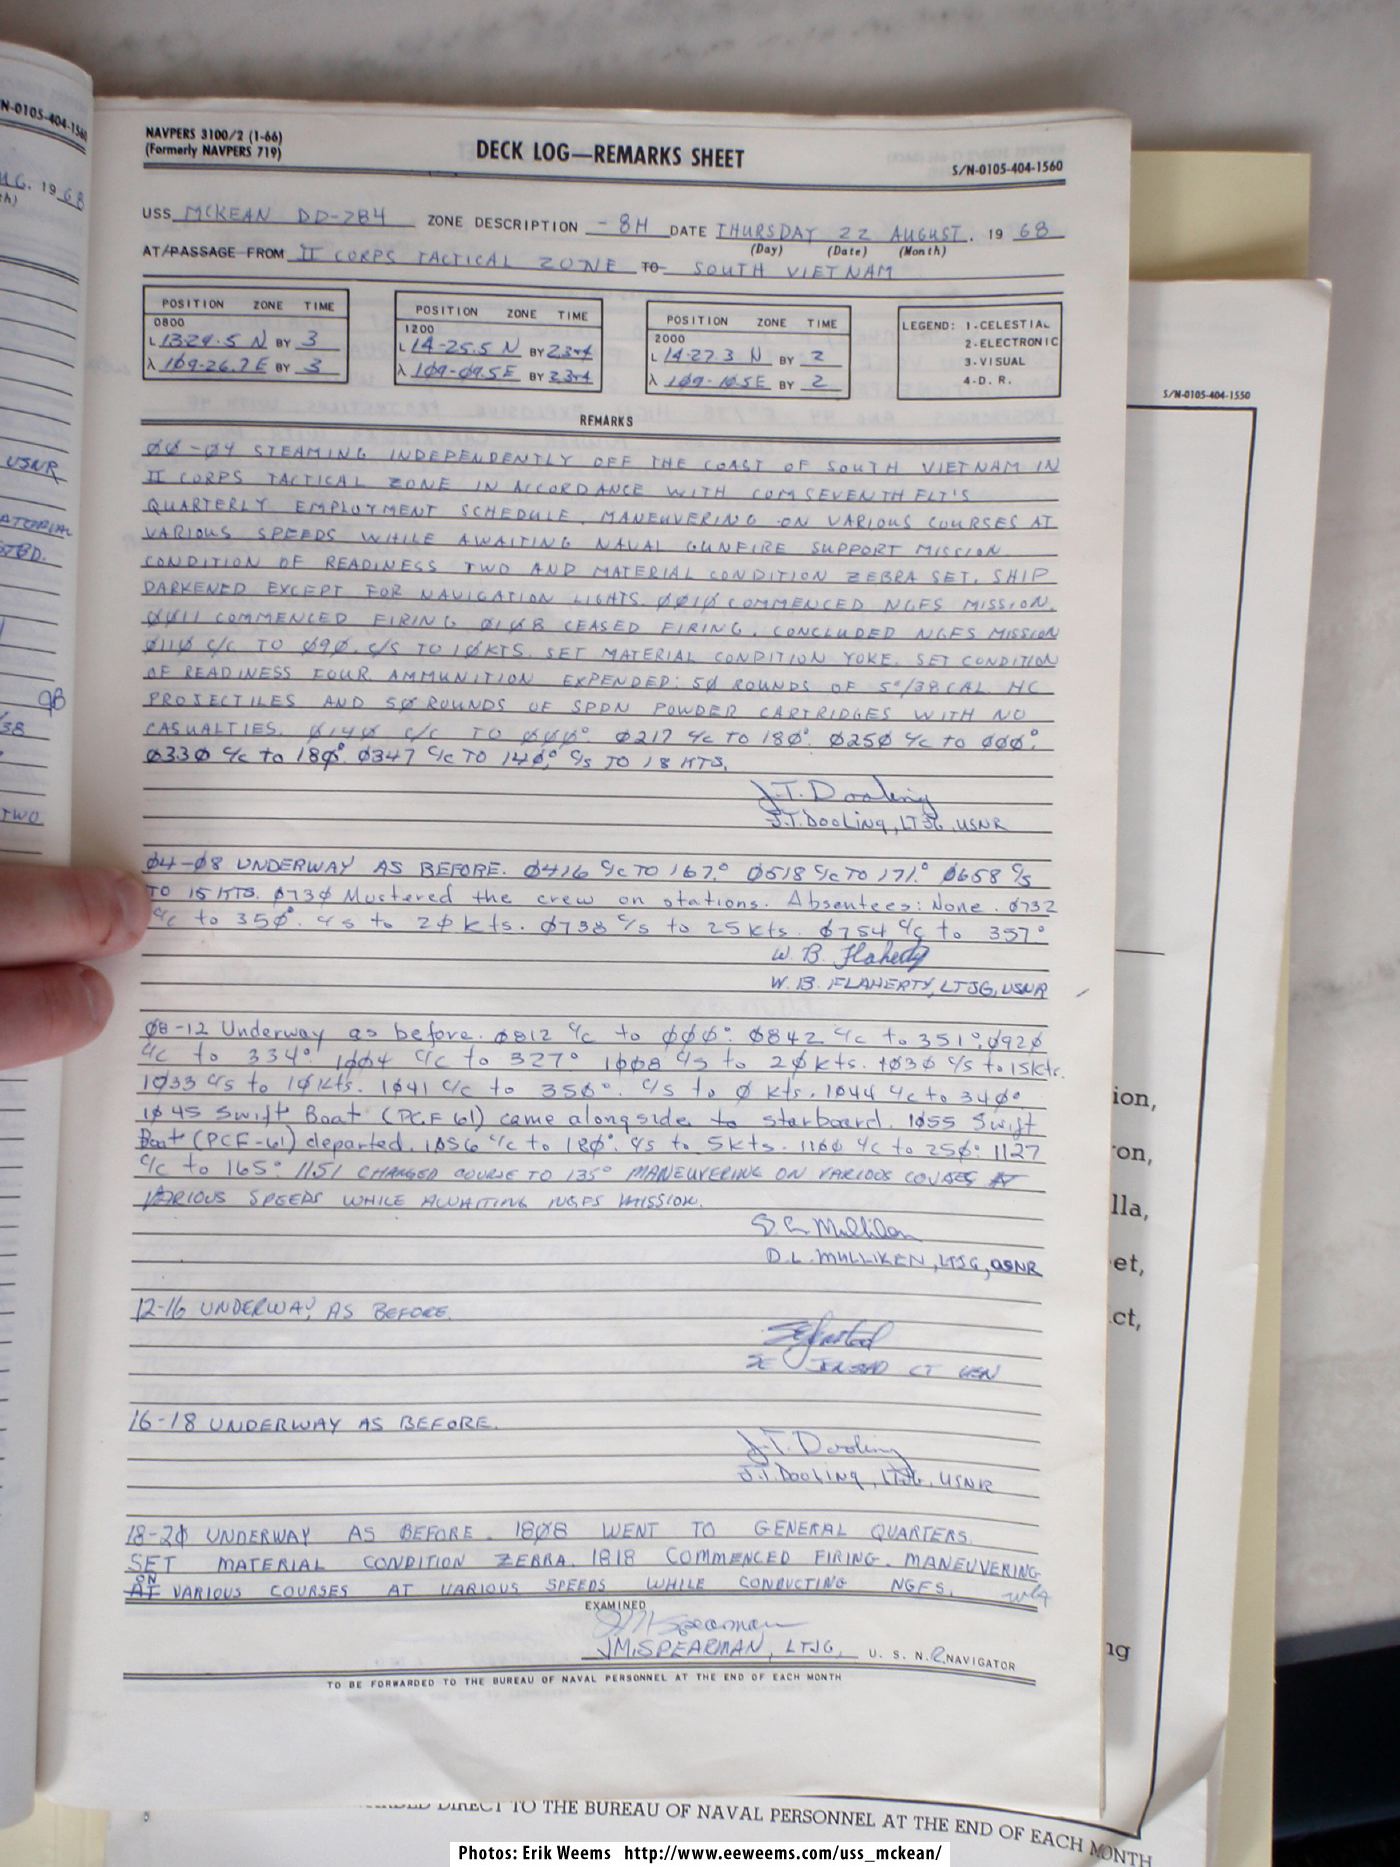 N-0105-404-156
UG. 1968
h)
USNR
TBD.
/38
TWO
NAVPERS 3100/2 (1-66)
(Formerly NAVPERS 719)
DECK LOG—REMARKS SHEET
S/N-0105-404-1560
USS MCKEAN DD-784 ZONE DESCRIPTION -8H DATE THURSDAY 22 AUGUST, 1968
(Day) (Date) (Month)
AT/PASSAGE FROM II CORPS TACTICAL ZONE TO SOUTH VIETNAM
POSITION ZONE TIME
0800
L 13-29.5 N BY 3
λ 109-26.7 E BY 3
POSITION ZONE TIME
1200
L 14-25.5 N BY 2,3+4
λ 109-09.5E BY 2,3+4
POSITION ZONE TIME
2000
L 14-27.3 N BY 2
λ 109-10.5E BY 2
LEGEND: 1-CELESTIAL
2-ELECTRONIC
3-VISUAL
4-D. R.
REMARKS
ØØ-Ø4 STEAMING INDEPENDENTLY OFF THE COAST OF SOUTH VIETNAM IN
II CORPS TACTICAL ZONE IN ACCORDANCE WITH COMSEVENTHFLT'S
QUARTERLY EMPLOYMENT SCHEDULE. MANEUVERING ON VARIOUS COURSES AT
VARIOUS SPEEDS WHILE AWAITING NAVAL GUNFIRE SUPPORT MISSION.
CONDITION OF READINESS TWO AND MATERIAL CONDITION ZEBRA SET. SHIP
DARKENED EXCEPT FOR NAVIGATION LIGHTS. ØØ1Ø COMMENCED NGFS MISSION.
ØØ11 COMMENCED FIRING. Ø1Ø8 CEASED FIRING. CONCLUDED NGFS MISSION
Ø11Ø C/C TO Ø9Ø. C/S TO 1ØKTS. SET MATERIAL CONDITION YOKE. SET CONDITION
OF READINESS FOUR. AMMUNITION EXPENDED: 5Ø ROUNDS OF 5"/38CAL HC
PROJECTILES AND 5Ø ROUNDS OF SPDN POWDER CARTRIDGES WITH NO
CASUALTIES. Ø14Ø C/C TO ØØØ°. Ø217 C/C TO 18Ø°. Ø25Ø C/C TO ØØØ°.
Ø33Ø C/C TO 18Ø°. Ø347 C/C TO 14Ø°, C/S TO 18 KTS.
J.T. Dooling
J.T. DOOLING, LTJG, USNR
Ø4-Ø8 UNDERWAY AS BEFORE. Ø416 C/C TO 167.° Ø518 C/C TO 171.° Ø658 C/S
TO 15 KTS. Ø73Ø Mustered the crew on stations. Absentees: None. Ø732
C/C to 35Ø°. C/S to 2Ø kts. Ø738 C/S to 25 kts. Ø754 C/C to 357°
W. B. Flaherty
W. B. FLAHERTY, LTJG, USNR
Ø8-12 Underway as before. Ø812 C/C to ØØØ°. Ø842 C/C to 351°, Ø92Ø
C/C to 334°. 1ØØ4 C/C to 327° 1ØØ8 C/S to 2Ø kts. 1Ø3Ø C/S to 15kts.
1Ø33 C/S to 1Ø kts. 1Ø41 C/C to 35Ø°. C/S to Ø kts. 1Ø44 C/C to 34Ø°
1Ø45 Swift Boat (PCF 61) came alongside to starboard. 1Ø55 Swift
Boat (PCF-61) departed. 1Ø56 C/C to 18Ø°. C/S to 5 kts. 11ØØ C/C to 25Ø°. 1127
C/C to 165° 1151 CHANGED COURSE TO 135° MANEUVERING ON VARIOUS COURSES AT
VARIOUS SPEEDS WHILE AWAITING NGFS MISSION.
D L Mulliken
D. L. MULLIKEN, LTJG, USNR
12-16 UNDERWAY AS BEFORE.
16-18 UNDERWAY AS BEFORE.
J.T. Dooling
J.T. DOOLING, LTJG, USNR
18-2Ø UNDERWAY AS BEFORE. 18Ø8 WENT TO GENERAL QUARTERS.
SET MATERIAL CONDITION ZEBRA. 1818 COMMENCED FIRING. MANEUVERING
ON
AT VARIOUS COURSES AT VARIOUS SPEEDS WHILE CONDUCTING NGFS.
EXAMINED
JM Spearman
J.M. SPEARMAN, LTJG, U. S. N.R. NAVIGATOR
TO BE FORWARDED TO THE BUREAU OF NAVAL PERSONNEL AT THE END OF EACH MONTH
S/N-0105-404-1550
ion,
on,
lla,
et,
ct,
ng
DIRECT TO THE BUREAU OF NAVAL PERSONNEL AT THE END OF EACH MONTH
Photos: Erik Weems http://www.eeweems.com/uss_mckean/